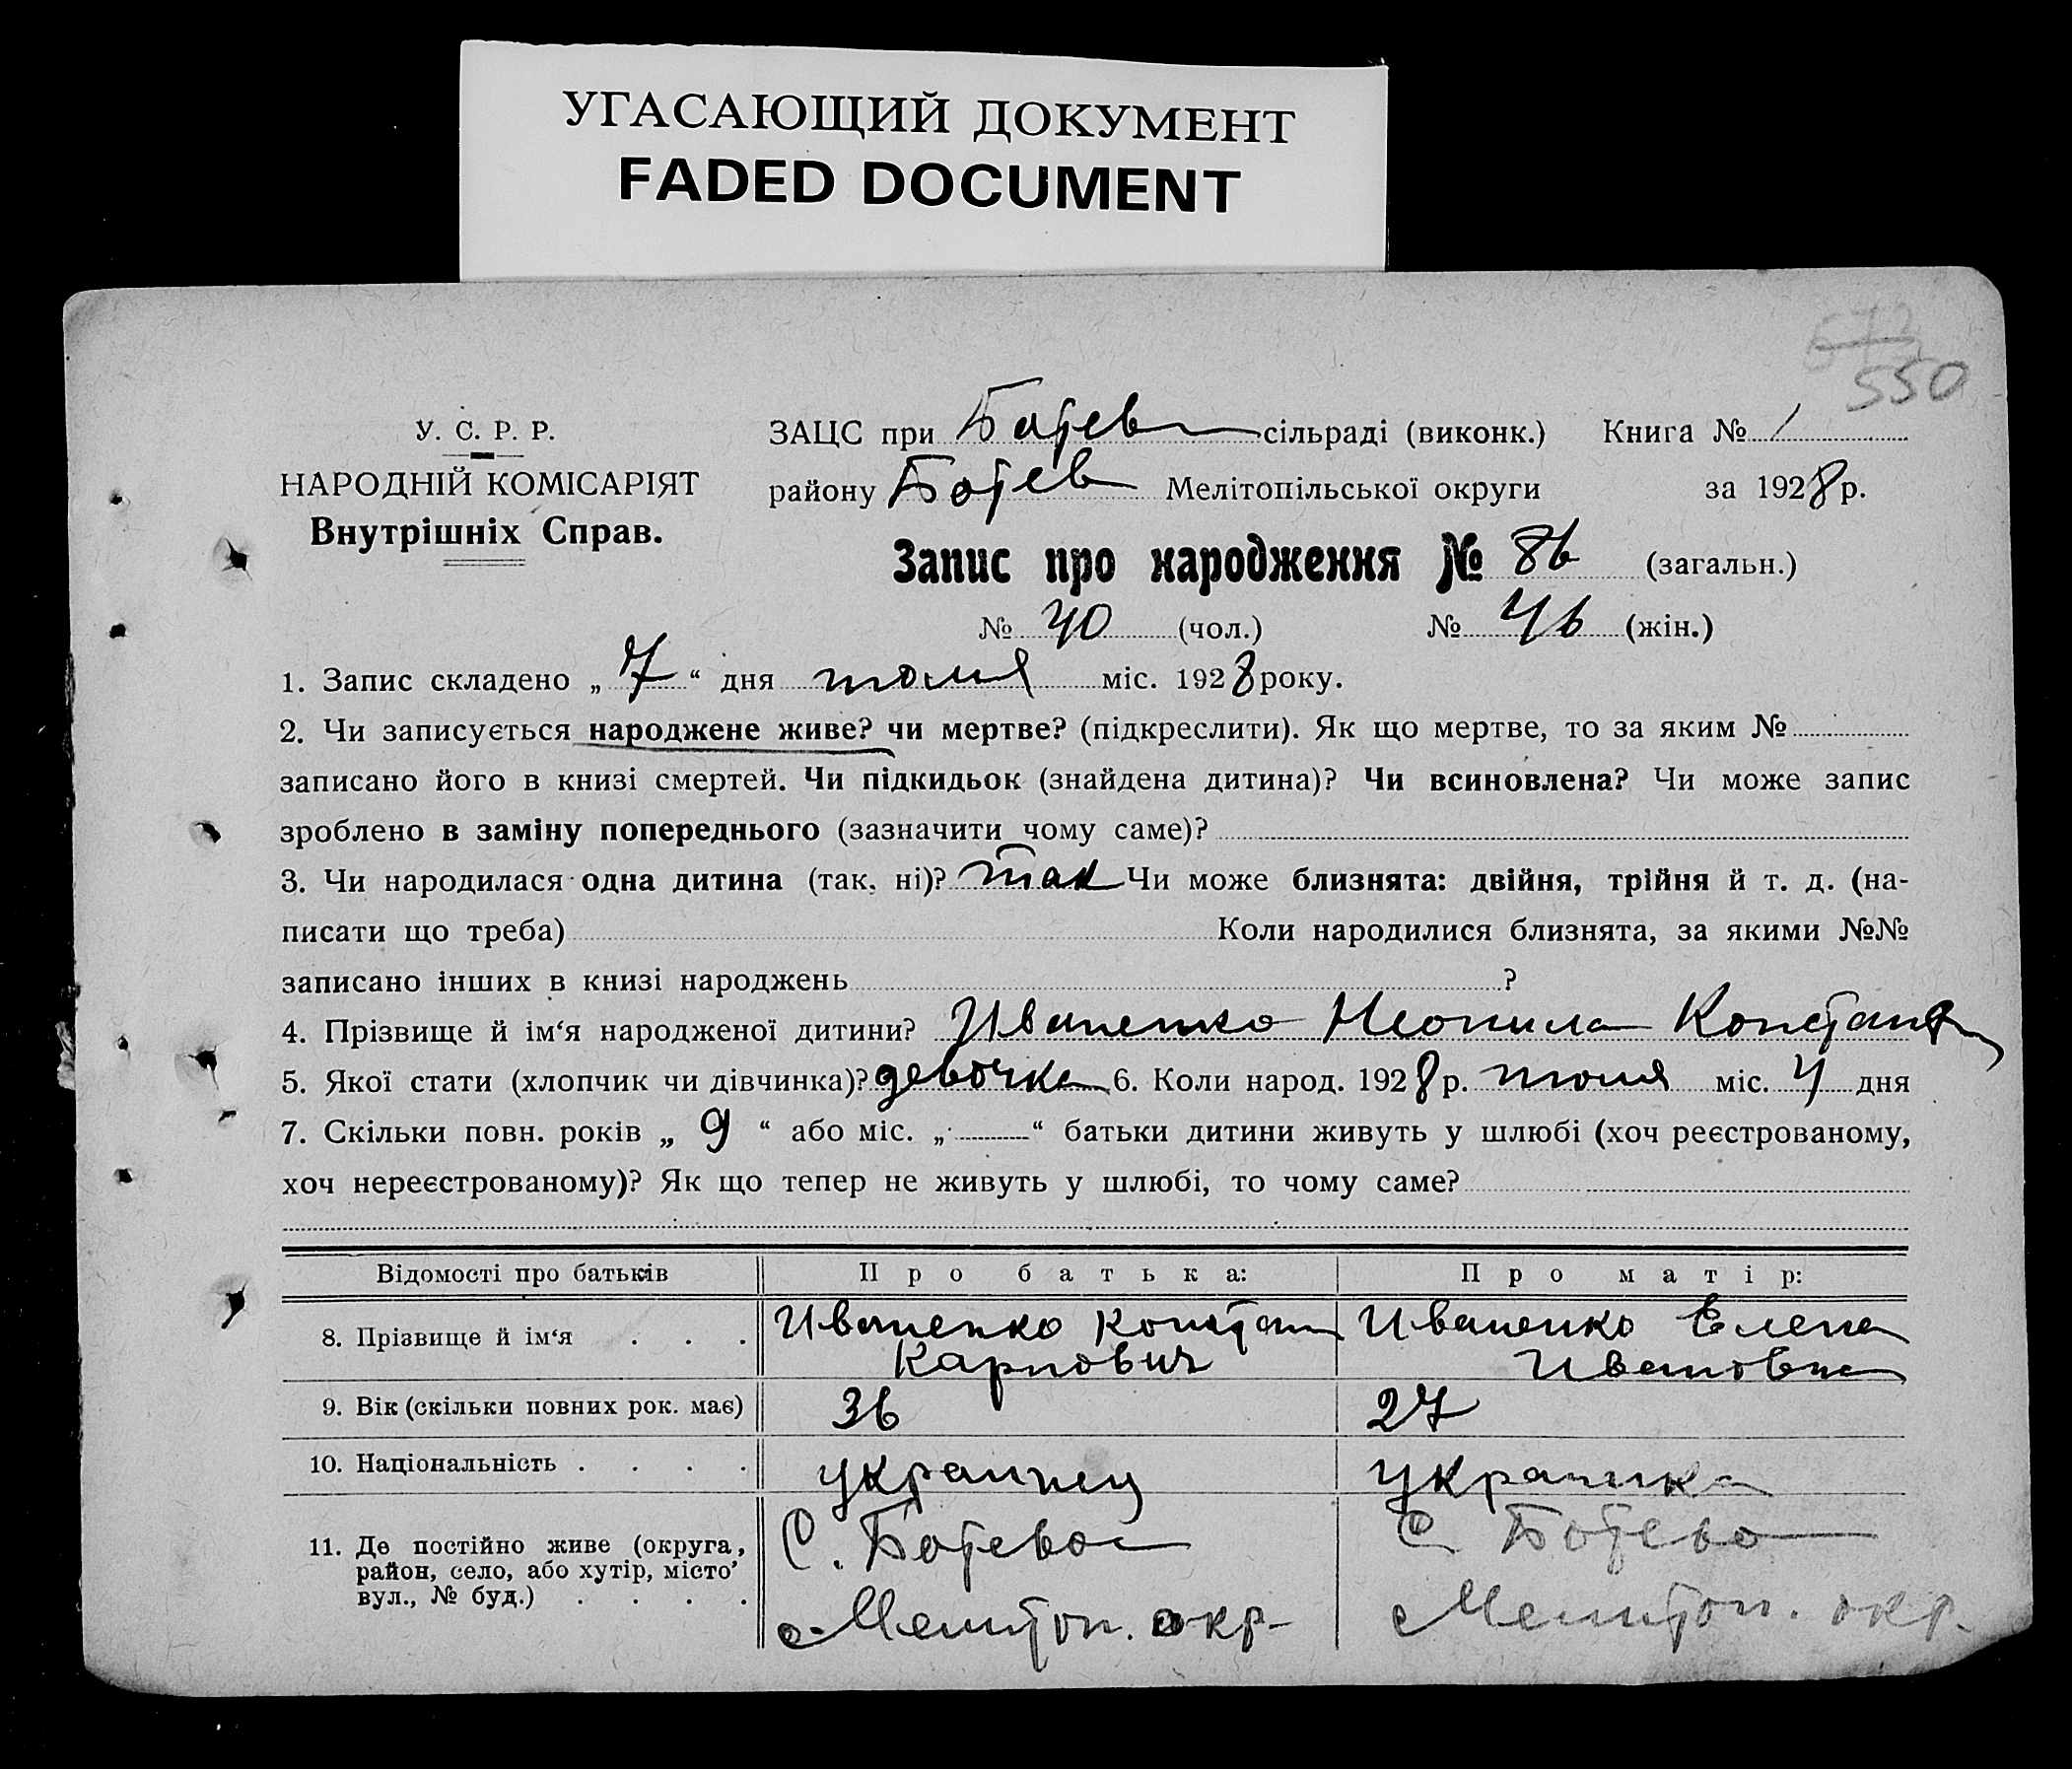 УГАСАЮЩИЙ ДОКУМЕНТ
FADED DOCUMENT
550
У. С. Р. Р.
НАРОДНІЙ КОМІСАРІЯТ
Внутрішніх Справ.
ЗАЦС при Ботев сільраді (виконк.) Книга № 1
району Ботев Мелітопільської округи за 1928 р.
Запис про народження № 86 (загальн.)
№ 40 (чол.) № 46 (жін.)
1. Запис складено „ 7 “ дня июля міс. 1928 року.
2. Чи записується народжене живе? чи мертве? (підкреслити). Як що мертве, то за яким №
записано його в книзі смертей. Чи підкидьок (знайдена дитина)? Чи всиновлена? Чи може запис
зроблено в заміну попереднього (зазначити чому саме)?
3. Чи народилася одна дитина (так, ні)? так Чи може близнята: двійня, трійня й т. д. (на-
писати що треба) Коли народилися близнята, за якими №№
записано інших в книзі народжень ?
4. Прізвище й ім‘я народженої дитини? Иваненко Неонила Констант
5. Якої стати (хлопчик чи дівчинка)? девочка 6. Коли народ. 1928 р. июля міс. 4 дня
7. Скільки повн. років „ 9 “ або міс. „ “ батьки дитини живуть у шлюбі (хоч реєстрованому,
хоч нереєстрованому)? Як що тепер не живуть у шлюбі, то чому саме?
Відомості про батьків Про батька: Про матір:
8. Прізвище й ім‘я . . . Иваненко Констан Иваненко Елена
Карпович Ивановна
9. Вік (скільки повних рок. має) 36 27
10. Національність . . . . украинец украинка
11. Де постійно живе (округа, район, село, або хутір, місто’ вул., № буд.) . . . . С. Ботево С Ботево
Мелитоп. окр. Мелитоп. окр.